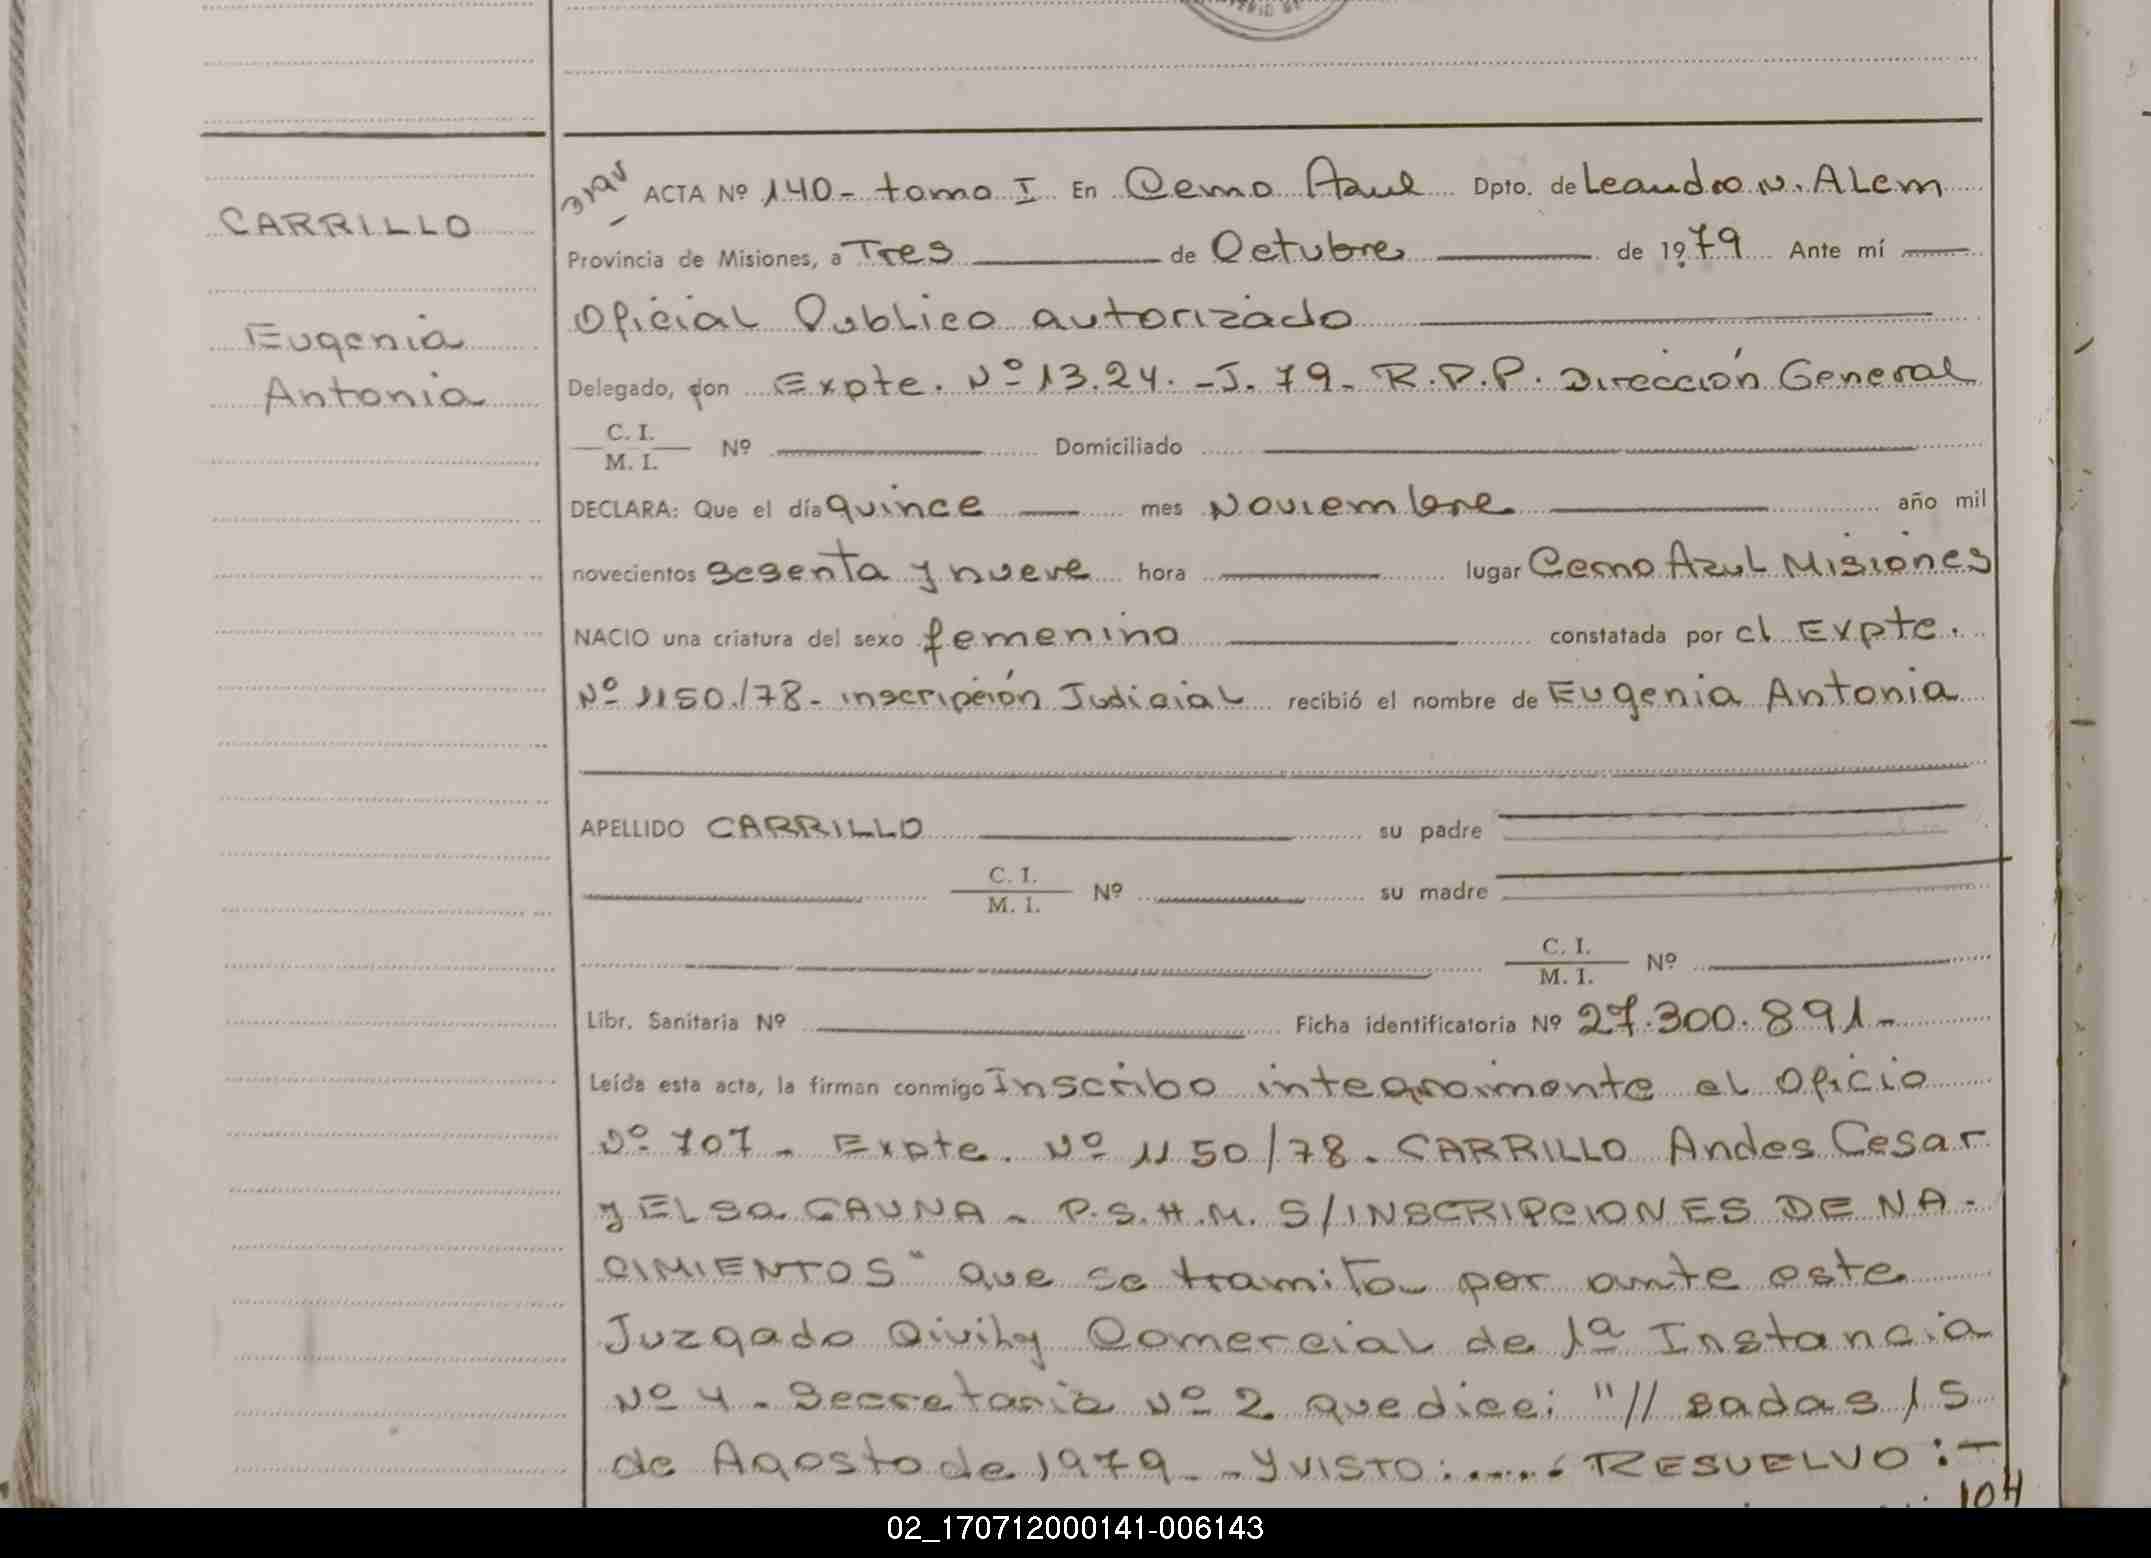 CARRILLO
Eugenia
Antonia
ACTA Nº 140- tomo I En Cerro Azul Dpto. de Leandro N. ALem
Provincia de Misiones, a Tres de Octubre de 1979 Ante mí
Oficial Publico autorizado
Delegado, don Expte. Nº 13.24.-J.79- R.P.P. Dirección General
C. I.
M. I. Nº Domiciliado
DECLARA: Que el día quince mes Noviembre año mil
novecientos sesenta y nueve hora lugar Cerro Azul Misiones
NACIO una criatura del sexo femenino constatada por el Expte.
Nº 1150./78- inscripción Judicial recibió el nombre de Eugenia Antonia
APELLIDO CARRILLO su padre
C. I.
M. I. Nº su madre
C. I.
M. I. Nº
Libr. Sanitaria Nº Ficha identificatoria Nº 27.300.891-
Leída esta acta, la firman conmigo Inscribo integramente el Oficio
Nº 707- Expte. Nº 1150/78- CARRILLO Andes Cesar
y ELsa GAUNA- P.S.H.M. S/INSCRIPCIONES DE NA-
CIMIENTOS" que se tramita por ante este
Juzgado Civil y Comercial de 1ª Instancia
Nº 4- Secretaria Nº 2 que dice: "// sadas 15
de Agosto de 1979.- y VISTO:..... RESUELVO:-
104
02_170712000141-006143